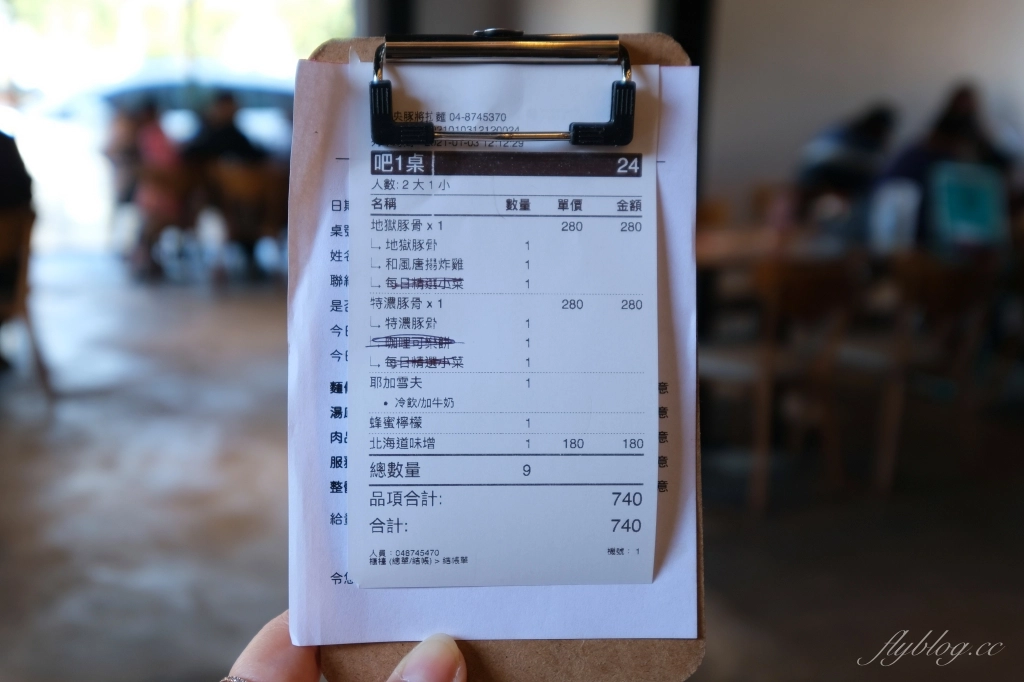 豚將拉麵 04-8745370
吧1桌 24
人數: 2 大 1 小
名稱 數量 單價 金額
地獄豚骨 x 1 280 280
地獄豚骨 1
和風唐揚炸雞 1
每日精選小菜 1
特濃豚骨 x 1 280 280
特濃豚骨 1
咖哩可樂餅
每日精選小菜 1
耶加雪夫 1
• 冷飲/加牛奶
蜂蜜檸檬 1
北海道味增 1 180 180
總數量 9
品項合計: 740
合計: 740
人員: 048745470 機號: 1
櫃檯 (總單/結帳) > 結帳單
日
桌
姓名
聯
是
今
今
麵
湯
肉
服
整
給
令您
意
意
意
意
意
flyblog.cc